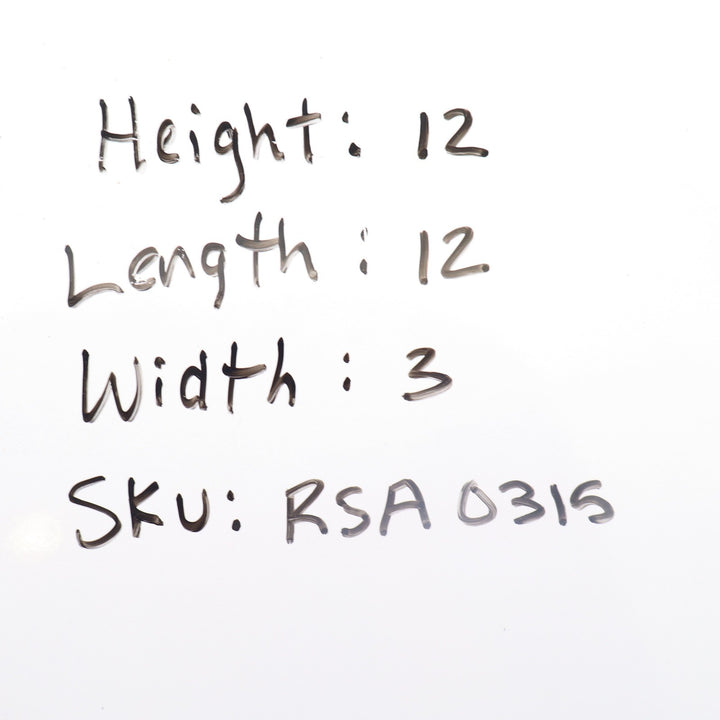 Height: 12
Length: 12
Width: 3
SKU: RSA 0315